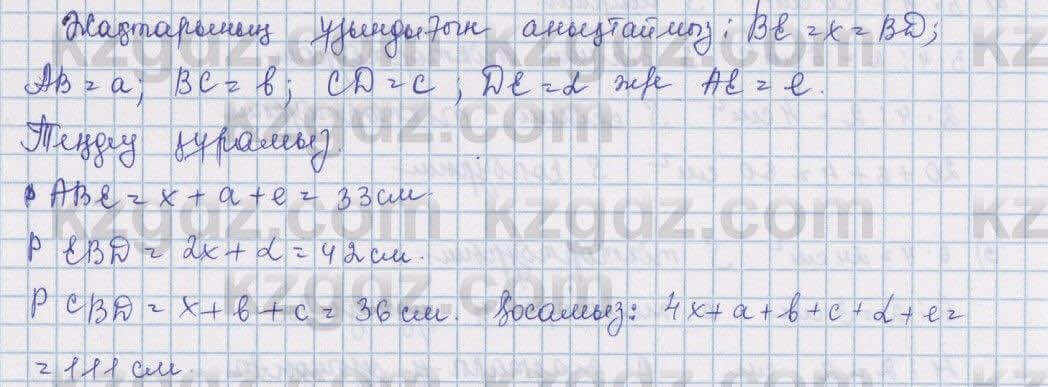 Жақтарының ұзындығын анықтаймыз: BE = x = BD;
AB = a; BC = b; CD = c; DE = d же AE = e.
Теңдеу құрамыз.
P ABE = x + a + e = 33 см.
P EBD = 2x + d = 42 см.
P CBD = x + b + c = 36 см. Қосамыз: 4x + a + b + c + d + e =
= 111 см.
kzgdz.com